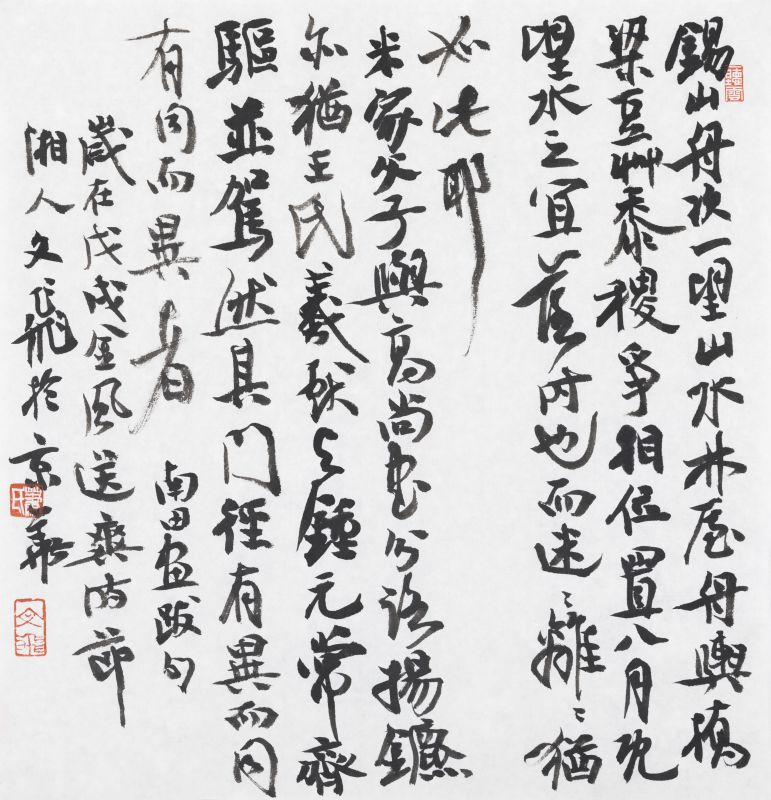 錫山舟次一望山水林屋舟輿橋
梁豆艸黍稷爭相位置八月既
望水之宜落時也而迷〻離〻猶
如此耶
米家父子與高尚書分路揚鑣
亦猶王氏羲獻与鍾元常齊
驅並駕然其門徑有異而同
有同而異者
南田画跋句
歲在戊戌金風送爽時節
湘人文飛於京華